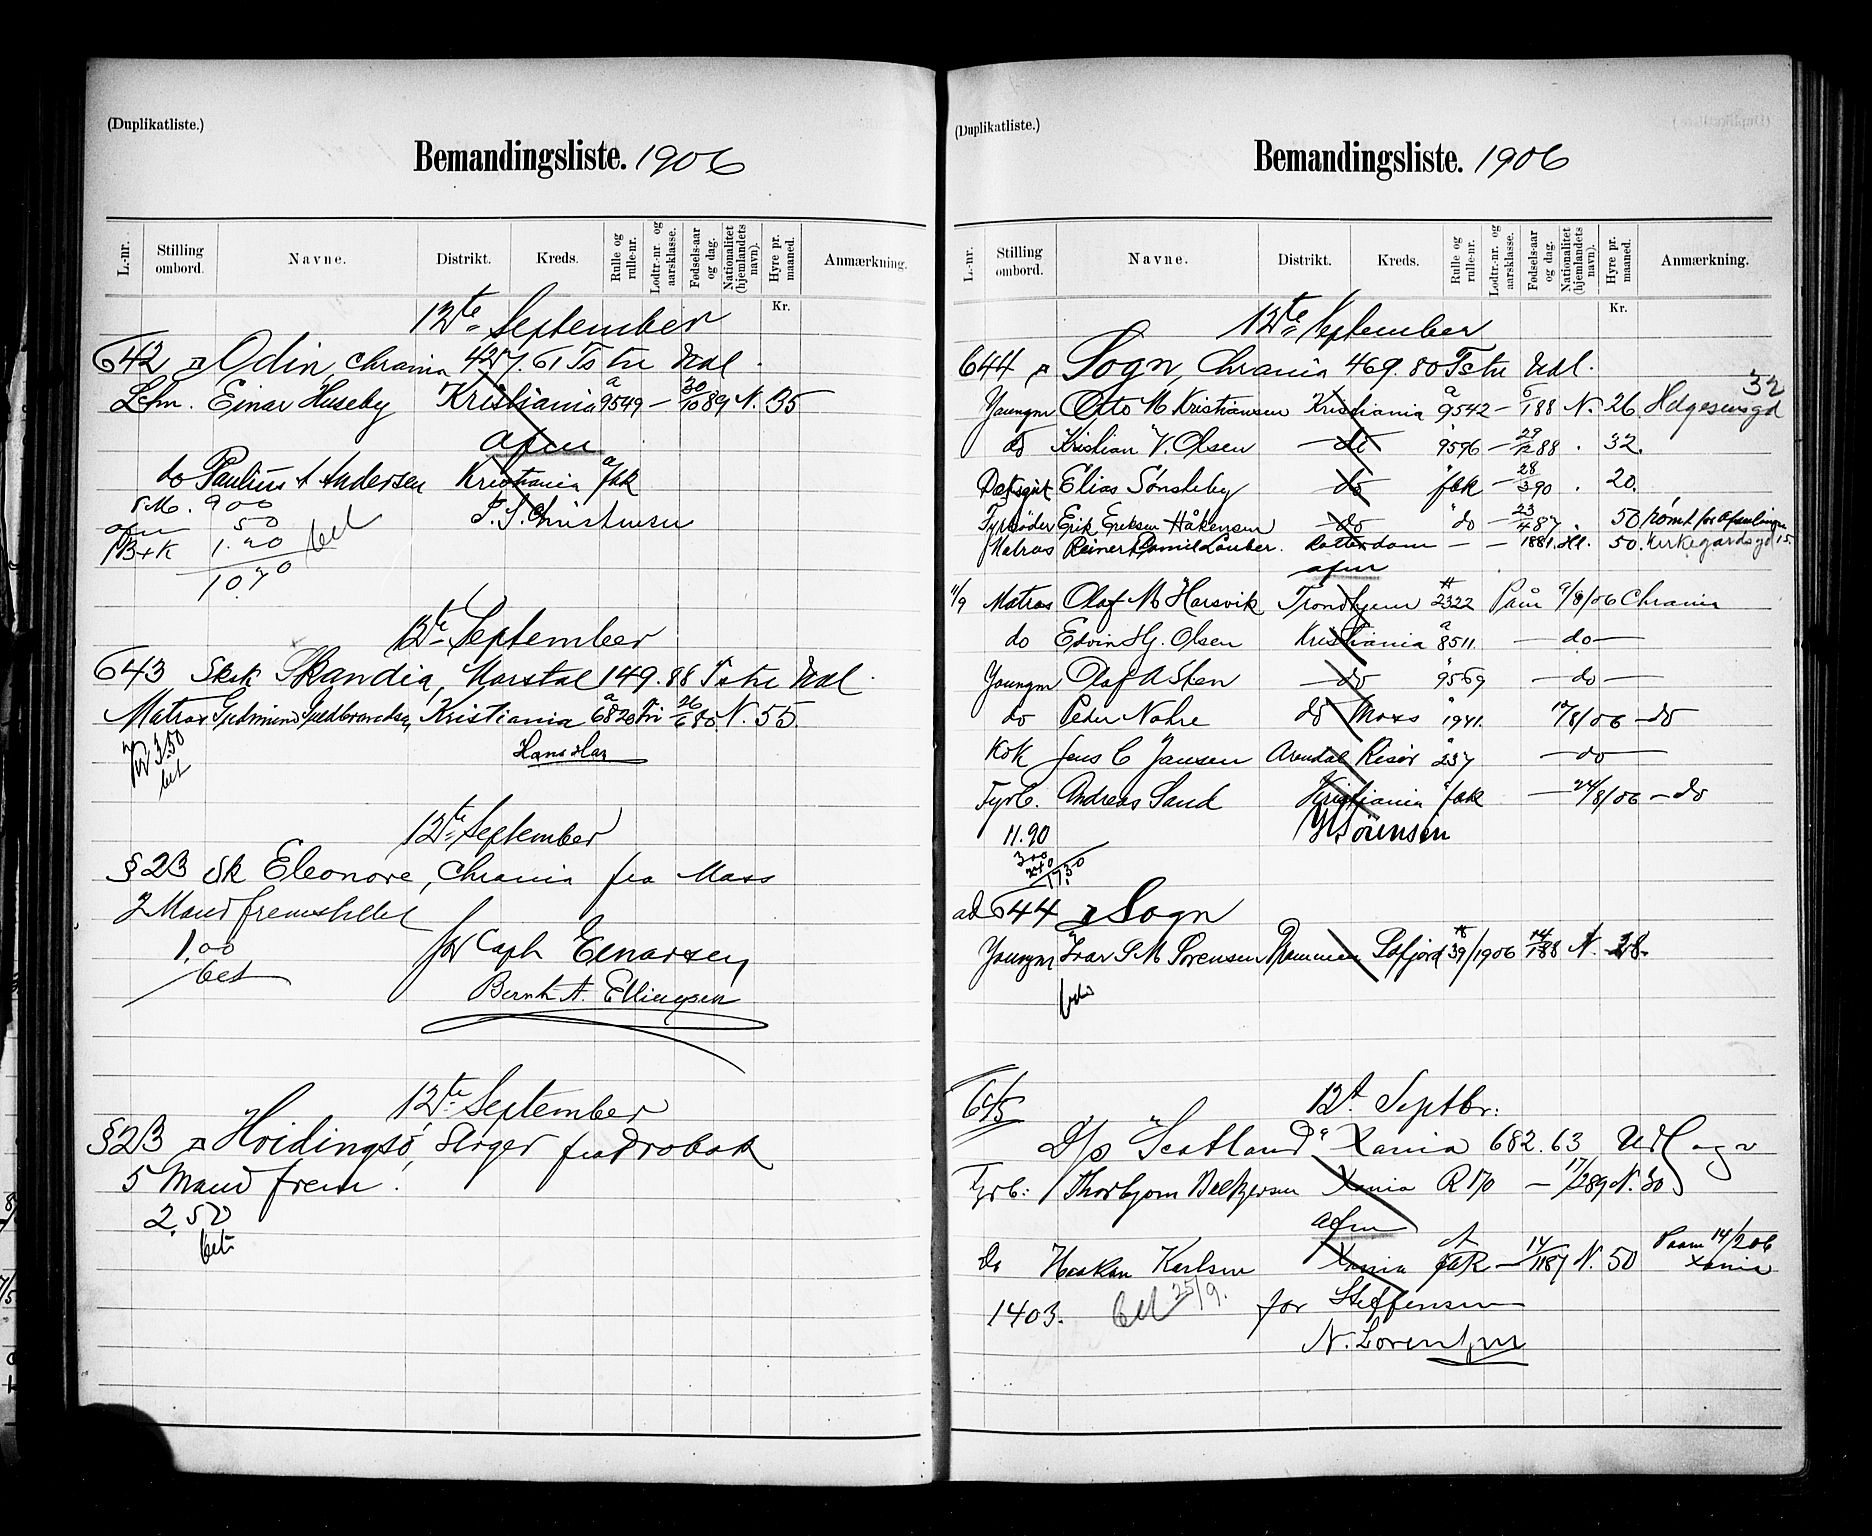 (Duplikatliste.)
Bemandingsliste. 1906
L.-nr.
Stilling ombord.
Navne.
Distrikt.
Kreds.
Rulle og rulle-nr.
Lodtr.-nr. og aarsklasse.
Fødsels-aar og dag.
Nationalitet (hjemlandets navn).
Hyre pr. maaned.
Anmærkning.
Kr.
12te September
642 Odin, Chrania 427.61 Ts tre Udl.
Einar Huseby Kristiania a 9549 — 30/10 89 N. 35
afm
do Paulius A Andersen Kristiania a fak
8 M. 900
afm 50
1.20
1070
bet
12te September
643 Sksk Skandia, Marstal 149.88 Ts tre Udl.
Matros Gudmund Guldbrandsen, Kristiania a 6820 fri 26/6 80 N. 55.
3.50
bet
12te September
§23 Sk Eleonore, Chrania fra Moss
2 Mand fremstillet
1.00
bet
for Capt Einarsen
Bernt A. Ellingsen
12te September
§23 Hvidingsø, fra Drøbak
5 Mand frem.
2.50
bet
(Duplikatliste.)
Bemandingsliste. 1906
L.-nr.
Stilling ombord.
Navne.
Distrikt.
Kreds.
Rulle og rulle-nr.
Lodtr.-nr. og aarsklasse.
Fødsels-aar og dag.
Nationalitet (hjemlandets navn).
Hyre pr. maaned.
Anmærkning.
Kr.
12te September
644 Sogn, Chrania 469.80 Ts tre Udl.
32
Youngm Otto M Kristiansen Kristiania a 9542 — 6/1 88 N. 26. Helgesensgd
do Kristian V. Olsen — do " 9596 — 29/12 88 . 32.
Elias Sønsteby do " fak — 28/3 90 . 20.
Fyrbøder Erik Eriksen Håkensen — do " do — 23/4 87 . 50 rømt for afseilingen
Matros Reinert Lauber. Rotterdam — — 1881. Hl. 50. Kirkegårdsgd 15.
afm
11/9 Matros Olaf M Harsvik Trondhjem 2322 Påm 9/8/06 Chrania
do Edvin Hj. Olsen Kristiania a 8511. — do —
Youngm Olaf A Sten — do " 9569 — do —
do Peder Nohre do Moss " 1941. 12/8/06 — do
Kok Jens C Jansen Arendal Risør a 237 — do —
Fyrb. Andreas Sand Kristiania a fak — 24/8/06 — do
11.90
300
240
17.30
Sørensen
ad 644 Sogn
Youngm Ivar S M Sørensen Drammen 39/1906 14/1 88 N. 28.
bet
645
12t Septbr.
D/s "Scotland" Xania 682.63 Udl
Fyrb: Thorbjørn Xania R 170 — 17/2 89 N. 30
afm
Do Haakon Karlsen Xania A fak — 14/11 87 N. 50 Paam 14/2 06 Xania
1403. bet 25/9. for Steffensen
N. Lorentzen